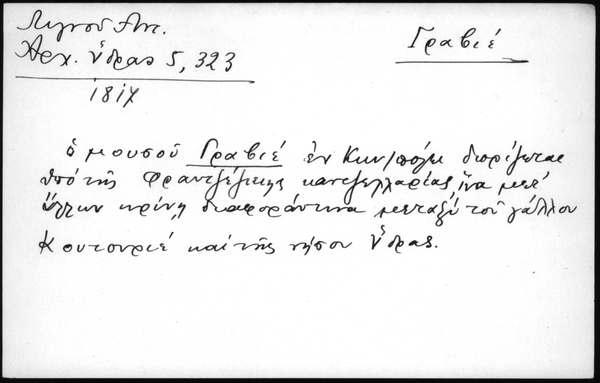 Λιγνοῦ Ἀντ.
Ἀρχ. Ὕδρας 5, 323
1814
Γραβιέ
ὁ μουσοῦ Γραβιέ ἐν Κων/πόλει διορίζεται
ὑπὸ τῆς Φραντζέζικης καντζελλαρίας, ἵνα μετ'
ἄλλων κρίνῃ διαφοράν τινα μεταξὺ τοῦ γάλλου
Κουτουριέ καὶ τῆς νήσου Ὕδρας.